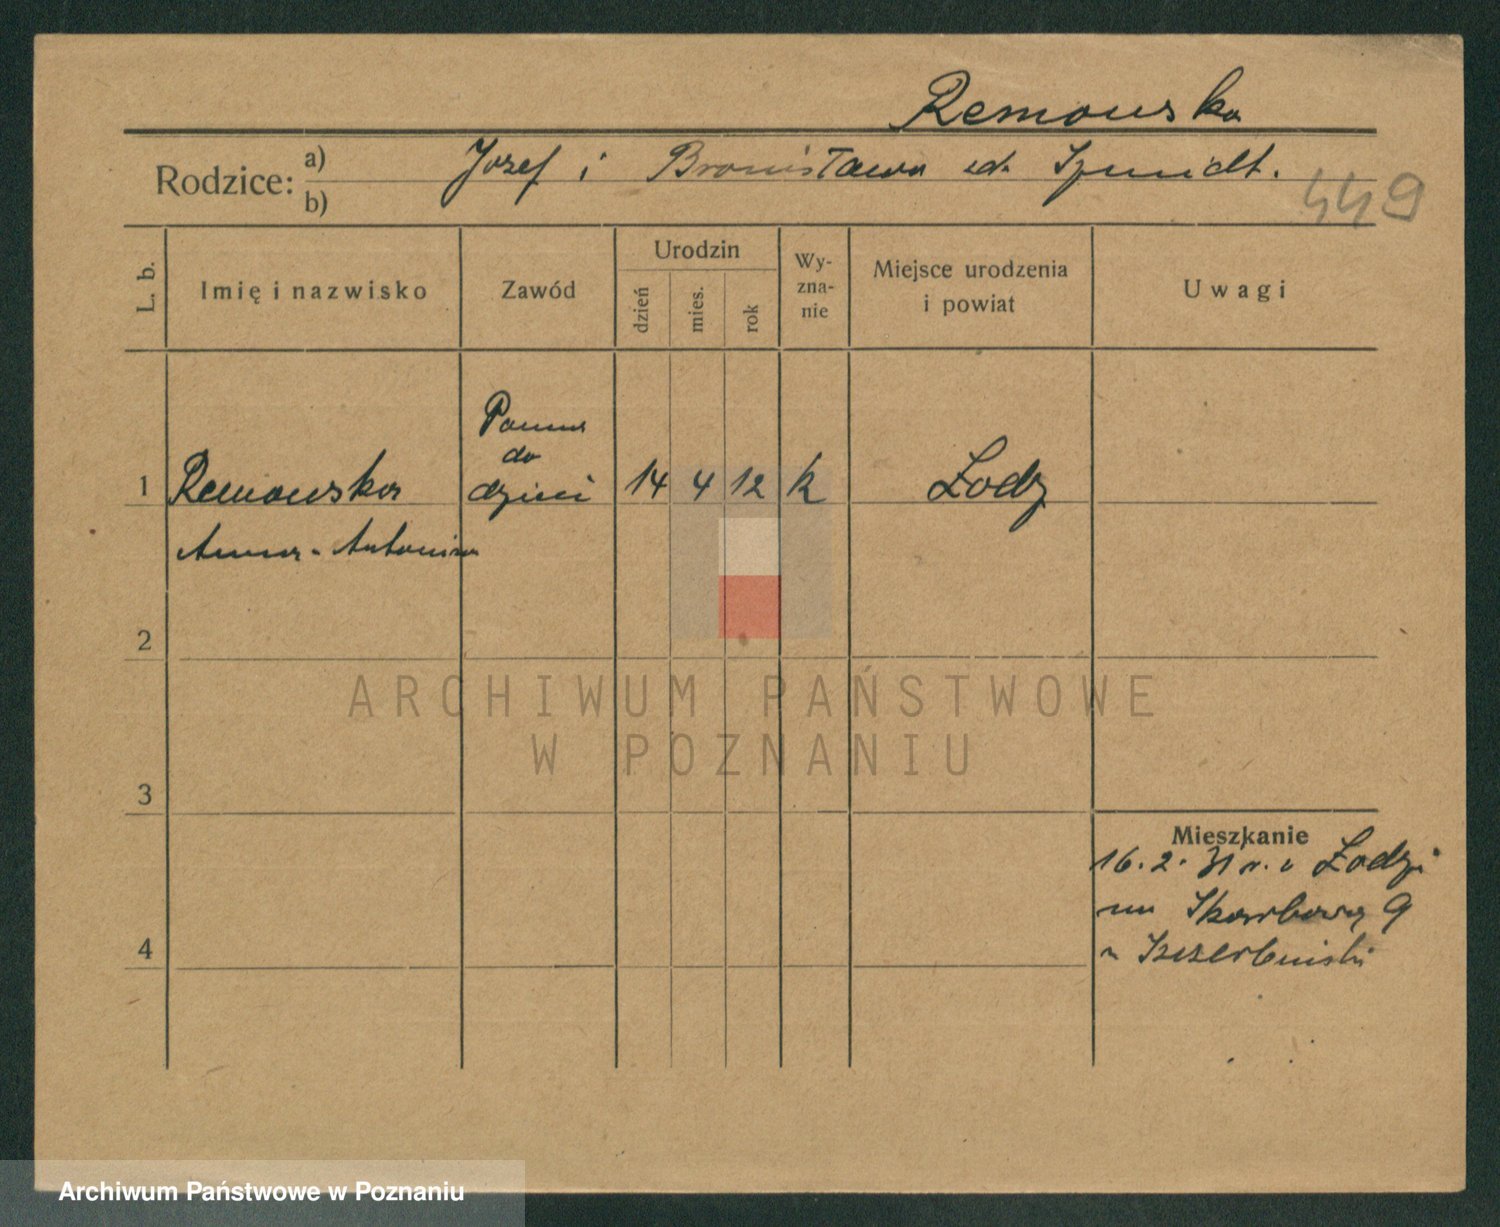 Remowska
Rodzice: a) Jozef i Bronisława zd. Szmidt.
b)
449
L. b.
Imię i nazwisko
Zawód
Urodzin
dzień
mies.
rok
Wy-
zna-
nie
Miejsce urodzenia
i powiat
Uwagi
Panna
do
1 Remowska dzieci 14 4 12 k Łodz
Anna - Antonina
2
ARCHIWUM PAŃSTWOWE
W POZNANIU
3
Mieszkanie
16. 2. 31 r. Łodzi
Skarbowa 9
4
Archiwum Państwowe w Poznaniu